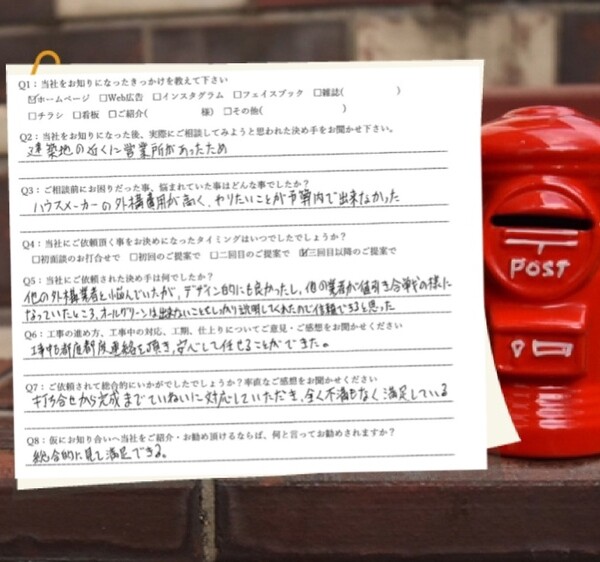 Q1：当社をお知りになったきっかけを教えて下さい
☑ホームページ □Web広告 □インスタグラム □フェイスブック □雑誌( )
□チラシ □看板 □ご紹介( 様) □その他( )
Q2：当社をお知りになった後、実際にご相談してみようと思われた決め手をお聞かせ下さい。
建築地の近くに営業所があったため
Q3：ご相談前にお困りだった事、悩まれていた事はどんな事でしたか？
ハウスメーカーの外構費用が高く、やりたいことが予算内で出来なかった
Q4：当社にご依頼頂く事をお決めになったタイミングはいつでしたでしょうか？
□初面談のお打合せで □初回のご提案で □二回目のご提案で ☑三回目以降のご提案で
Q5：当社にご依頼された決め手は何でしたか？
他の外構業者と悩んでいたが、デザイン的にも良かったし、他の業者が値引き合戦の様に
なっていたところ、オールグリーンは出来ないこともしっかり説明してくれたので信頼できると思った
Q6：工事の進め方、工事中の対応、工期、仕上りについてご意見・ご感想をお聞かせください
工事中も都度都度連絡を頂き、安心して任せることができた。
Q7：ご依頼されて総合的にいかがでしたでしょうか？率直なご感想をお聞かせください
打ち合せから完成までていねいに対応していただき、全く不満もなく満足している
Q8：仮にお知り合いへ当社をご紹介・お勧め頂けるならば、何と言ってお勧めされますか？
総合的に見て満足できる。
〒
POST